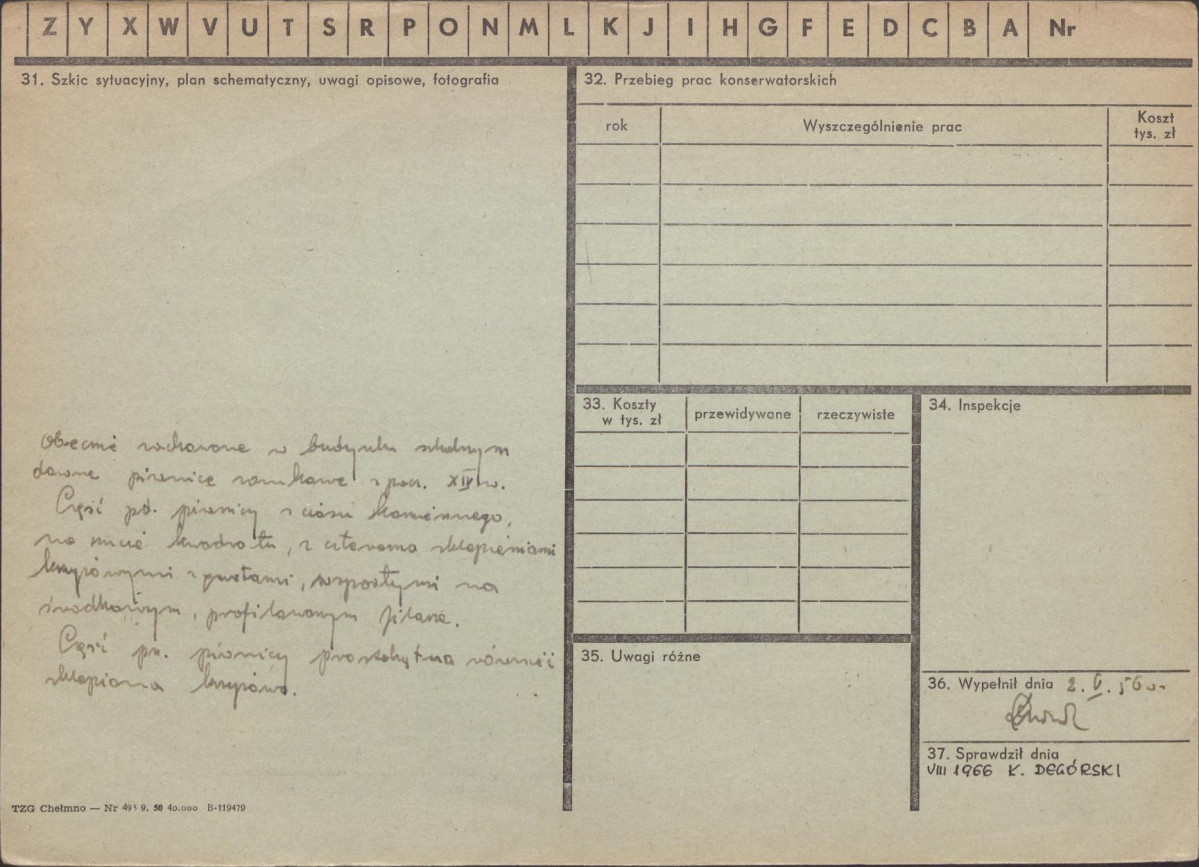 Z Y X W V U T S R P O N M L K J I H G F E D C B A Nr
31. Szkic sytuacyjny, plan schematyczny, uwagi opisowe, fotografia
Obecnie zachowane w budynku szkolnym
dawne piwnice zamkowe z pocz. XIV w.
Część pd. piwnicy z ciosu kamiennego,
na rzucie kwadratu, z czterema sklepieniami
krzyżowymi z gurtami, wspartymi na
środkowym, profilowanym filarze.
Część pn. piwnicy prostokątna również
sklepiona krzyżowo.
TZG Chełmno — Nr 493 9. 56 40.000 B-119479
32. Przebieg prac konserwatorskich
rok Wyszczególnienie prac Koszt
tys. zł
33. Koszty
w tys. zł przewidywane rzeczywiste
34. Inspekcje
35. Uwagi różne
36. Wypełnił dnia
37. Sprawdził dnia
VIII 1966 K. DEGÓRSKI